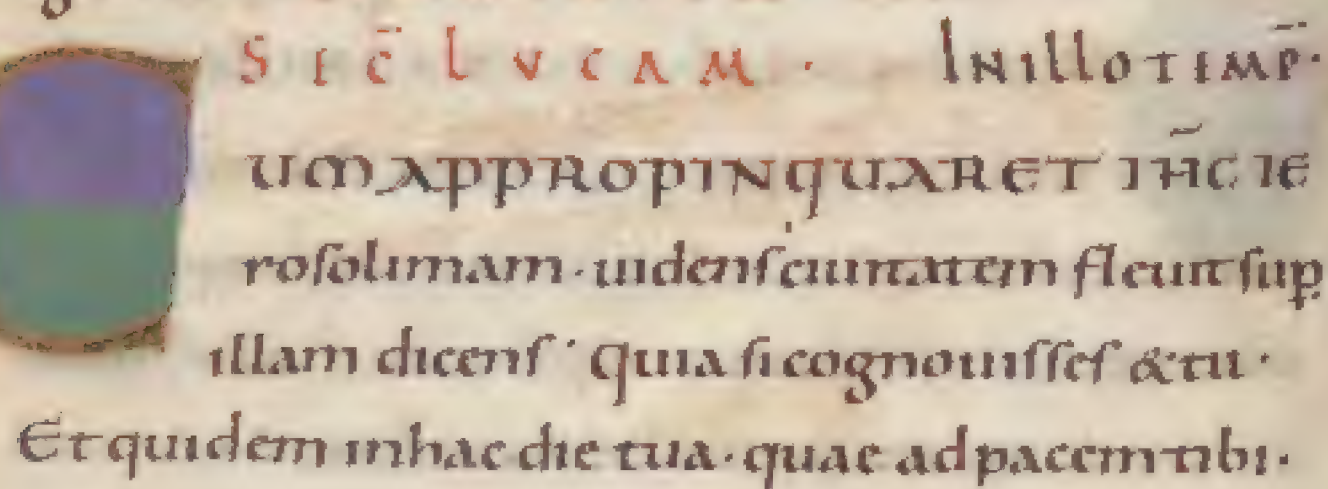 S E C̄ L U C A M · IN ILLO TEMP̄·
CUM APPROPINQUARET IH̄C IE
rosolimam· uidens ciuitatem fleuit sup̱
illam dicens· quia si cognouisses & tu·
Et quidem in hac die tua· quae ad pacem tibi·